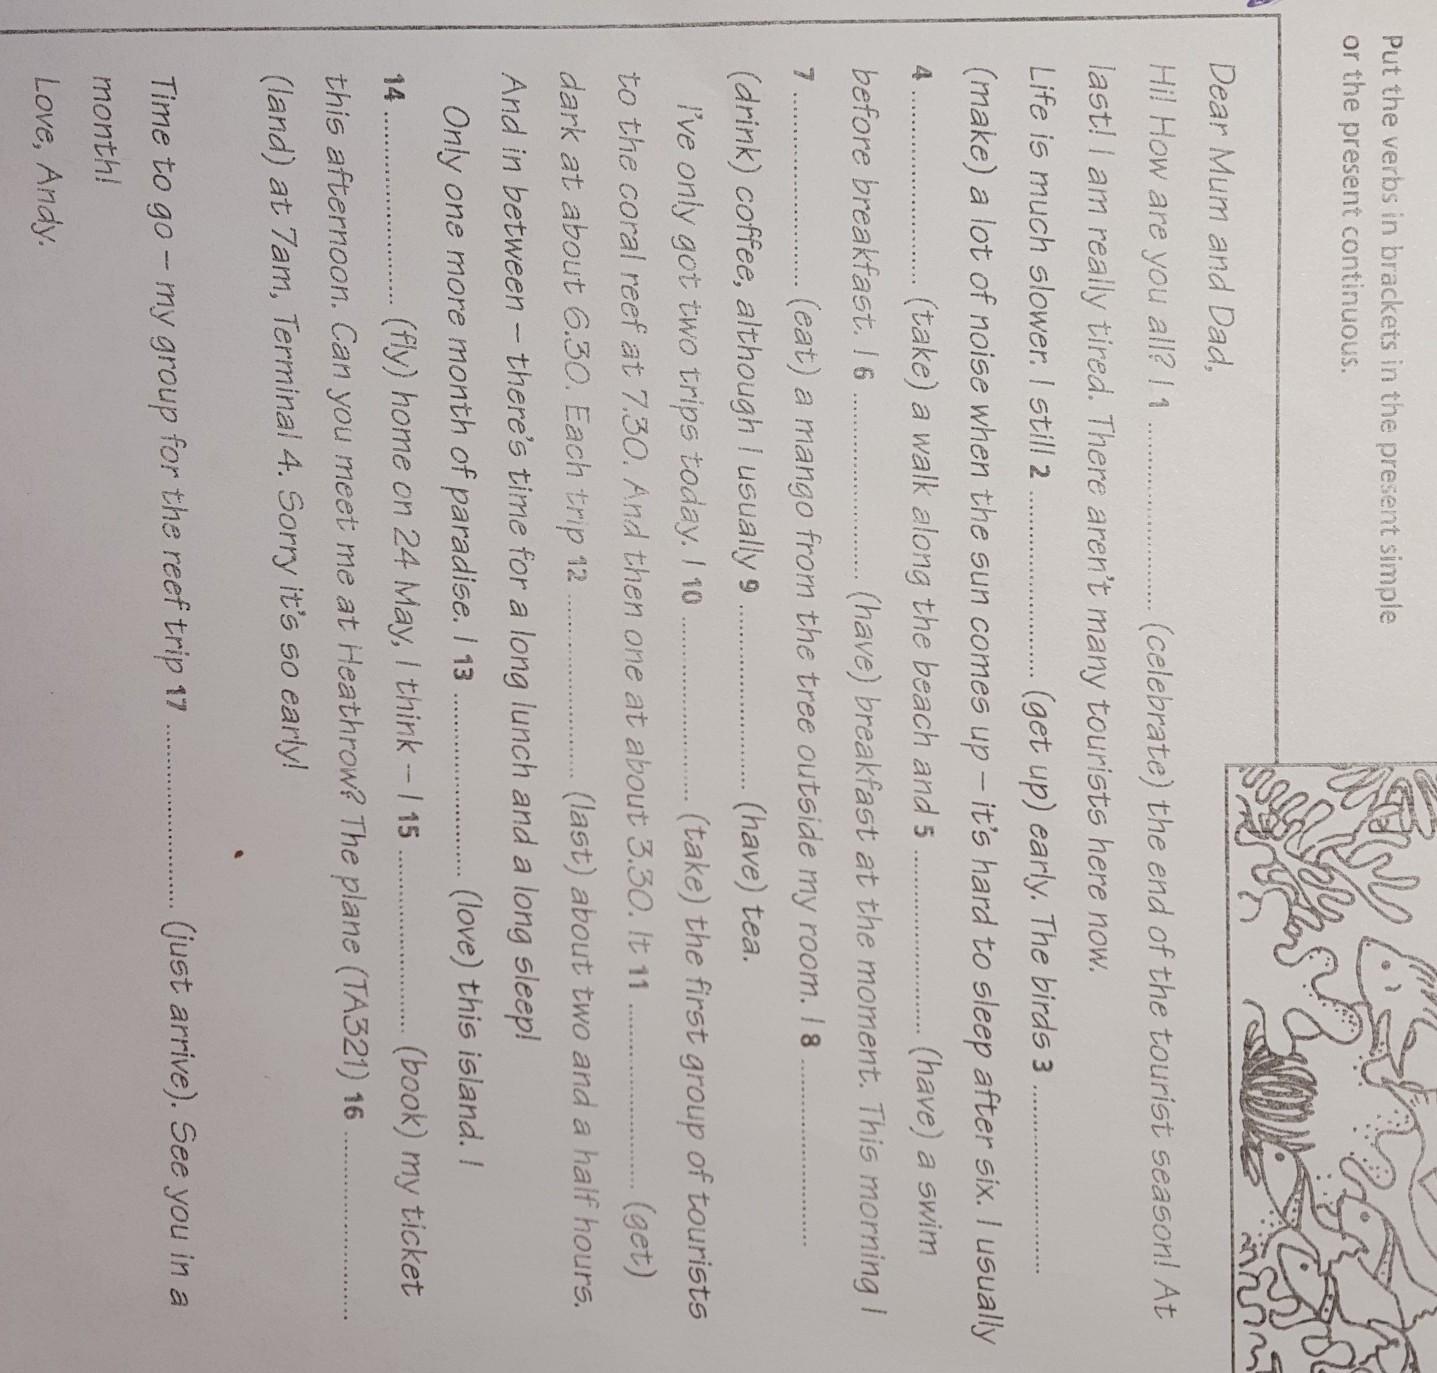 Put the verbs in brackets in the present simple
or the present continuous.
Dear Mum and Dad,
Hi! How are you all? I 1 .............................. (celebrate) the end of the tourist season! At
last! I am really tired. There aren't many tourists here now.
Life is much slower. I still 2 .............................. (get up) early. The birds 3 ..............................
(make) a lot of noise when the sun comes up – it's hard to sleep after six. I usually
4 .............................. (take) a walk along the beach and 5 .............................. (have) a swim
before breakfast. I 6 .............................. (have) breakfast at the moment. This morning I
7 .............................. (eat) a mango from the tree outside my room. I 8 ..............................
(drink) coffee, although I usually 9 .............................. (have) tea.
I've only got two trips today. I 10 .............................. (take) the first group of tourists
to the coral reef at 7.30. And then one at about 3.30. It 11 .............................. (get)
dark at about 6.30. Each trip 12 .............................. (last) about two and a half hours.
And in between – there's time for a long lunch and a long sleep!
Only one more month of paradise. I 13 .............................. (love) this island. I
14 .............................. (fly) home on 24 May, I think – I 15 .............................. (book) my ticket
this afternoon. Can you meet me at Heathrow? The plane (TA321) 16 ..............................
(land) at 7am, Terminal 4. Sorry it's so early!
Time to go – my group for the reef trip 17 .............................. (just arrive). See you in a
month!
Love, Andy.